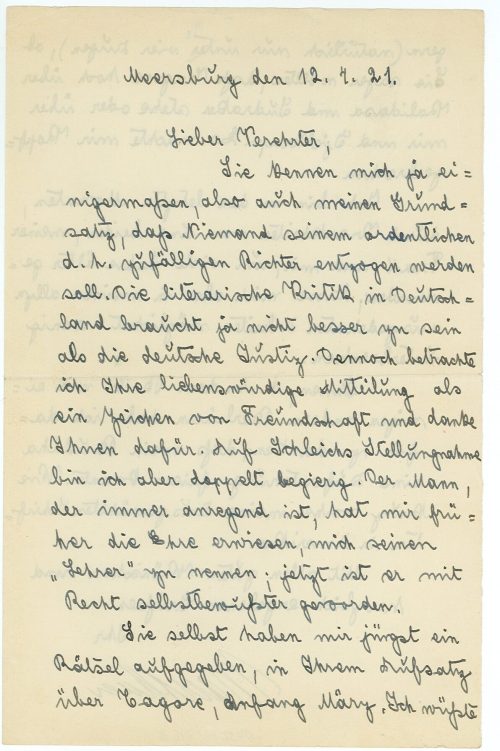 Meersburg den 12. 4. 21.
Lieber Verehrter,
Sie kennen mich ja ei-
nigermaßen, also auch meinen Grund-
satz, daß Niemand seinem ordentlichen
d. h. zufälligen Richter entzogen werden
soll. Die literarische Kritik in Deutsch-
land braucht ja nicht besser zu sein
als die deutsche Justiz. Dennoch betrachte
ich Ihre liebenswürdige Mitteilung als
ein Zeichen von Freundschaft und danke
Ihnen dafür. Auf Schleichs Stellungnahme
bin ich aber doppelt begierig. Der Mann,
der immer anregend ist, hat mir frü-
her die Ehre erwiesen, mich seinen
„Lehrer" zu nennen, jetzt ist er mit
Recht selbstbewußter geworden.
Sie selbst haben mir jüngst ein
Rätsel aufgegeben, in Ihrem Aufsatz
über Tagore, Anfang März. Ich wüßte